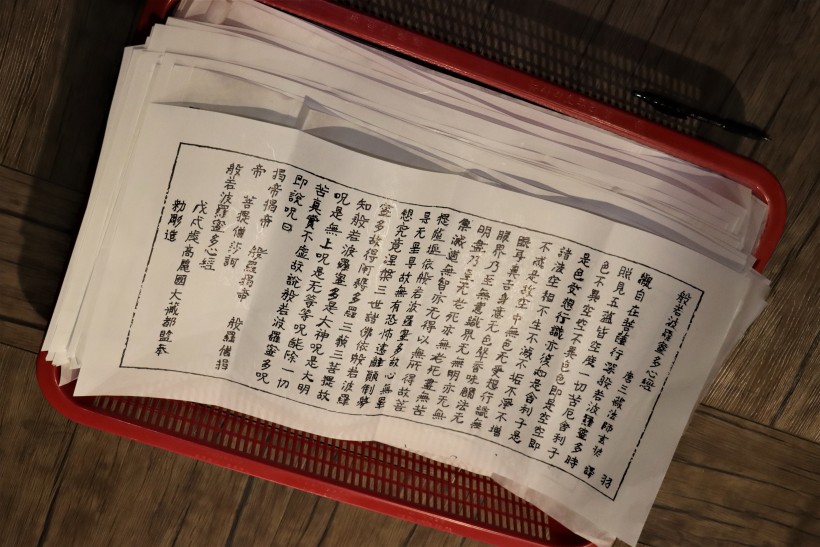 般若波羅蜜多心經
唐三藏法師玄奘 譯 羽
觀自在菩薩行深般若波羅蜜多時
照見五蘊皆空度一切苦厄舍利子
色不異空空不異色色即是空空即
是色受想行識亦復如是舍利子是
諸法空相不生不滅不垢不淨不增
不減是故空中無色无受想行識無
眼耳鼻舌身意无色聲香味觸法无
眼界乃至無意識界无無明亦无無
明盡乃至无老死亦無老死盡無苦
集滅道無智亦无得以無所得故菩
提薩埵依般若波羅蜜多故心無罣
㝵无罣㝵故無有恐怖遠離顛倒夢
想究竟涅槃三世諸佛依般若波羅
蜜多故得阿耨多羅三藐三菩提故
知般若波羅蜜多是大神呪是大明
呪是無上呪是无等等呪能除一切
苦真實不虛故說般若波羅蜜多呪
即說呪曰
揭帝揭帝 般羅揭帝 般羅僧揭
帝 菩提僧莎訶
般若波羅蜜多心經
戊戌歲高麗國大藏都監奉
勅彫造